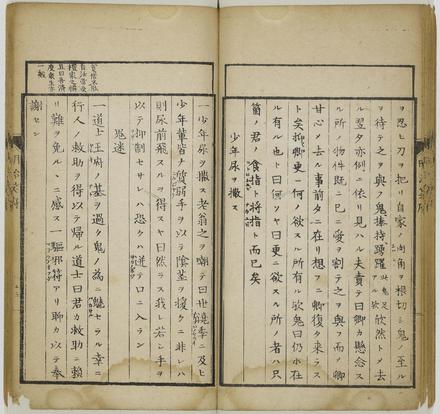 ヲ忍ヒ刀ヲ把リ自家ノ肉角ヲ根切シ鬼ノ至ル
ヲ待テ之ヲ與フ鬼捧持踴躍欣然トメ去
ル翌夕亦例ニ依見ハル夫責テ曰卿カ懸念ス
ル所ノ物件既ニ已ニ愛ヲ割テ之ヲ與フ而ノ卿
甘心メ去ル事前夕ニ在リ想フニ卿復タ來ラス
ト矣抑卿更ニ何ノ欲スル所有ル歟鬼曰仍ホ在
ル有ル也ト曰何ソヤ曰更ニ欲スル所ノ者ハ只
箇ノ君ノ食指ト將指ト而已矣
少年尿ヲ撒ス
一少年尿ヲ撒ス老翁之ヲ嘲テ曰世澆季ニ及ヒ
少年輩皆ナ懦弱手ヲ以テ陰莖ヲニ非レハ
則尿前飛スルヲ得スヤ曰然ラス我レ若シ手ヲ
以テ抑制セサレハ恐クハ迸テ口ニ入ラン
鬼迷
一道士王府ノ基ヲ過ク鬼ノ為ニ魅セラル幸ニ
行人ノ救助ヲ得以テ帰ル道士曰君カ救助ニ賴
リ難ヲ免ル丶ニ感ス一驅邪符アリ聊カ以テ奉
謝セン